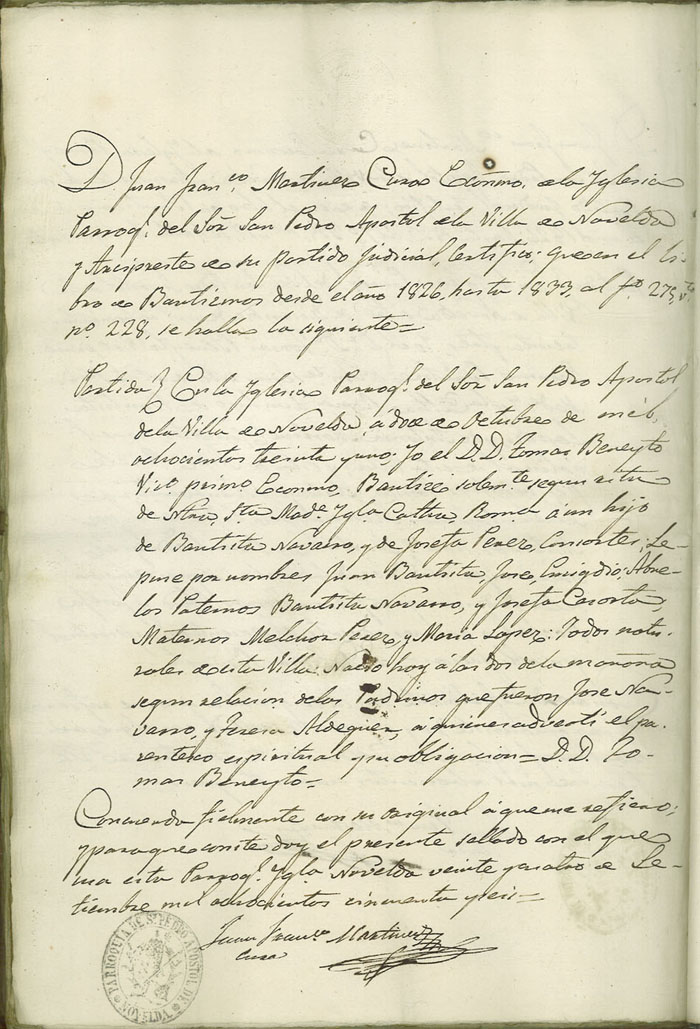 D. Juan Fran.co Martinez Cura Ecónmo. de la Yglesia
Parroql. del Sor. San Pedro Apostol de la Villa de Novelda
y Arcipreste de su partido Judicial, Certifico: que en el Li-
bro de Bautizmos desde el año 1826, hasta 1833, al fº. 275,
nº. 228, se halla la siguiente=
Partida} En la Yglesia Parroql. del Sor. San Pedro Apostol
de la Villa de Novelda á doce de Octubre de mil
ochocientos treinta y uno; Yo el D.D. Tomas Beneyto
Vico. primo. Economo, Bautizé solemte. segun ritu
de Ntra. Sta. Made. Ygla. Cattca. Romа. á un hijo
de Bautista Navarro, y de Josefa Perez, Consortes; Le
puse por nombres Juan Bautista, Jose, Emigdio; Abue-
los Paternos Bautista Navarro, y Josefa Cazorla,
Maternos Melchor Perez, y Maria Lopez: Todos natu-
rales de esta Villa: Nacio hoy á las dos de la mañana
segun relacion de los Padrinos que fueron Jose Na-
varro, y Teresa Aldeguer, á quienes advertí el pa-
rentesco espiritual y su obligacion= D.D. To-
mas Beneyto=
Concuerda fielmente con su original á que me refiero;
y para que conste doy el presente sellado con el que
usa esta Parroql. Ygla. Novelda veinte y cuatro de Se-
tiembre mil ochocientos cincuenta y seis=
Juan Franco. Martinez
Cura
PARROQUIA DE S. PEDRO APOSTOL DE NOVELDA